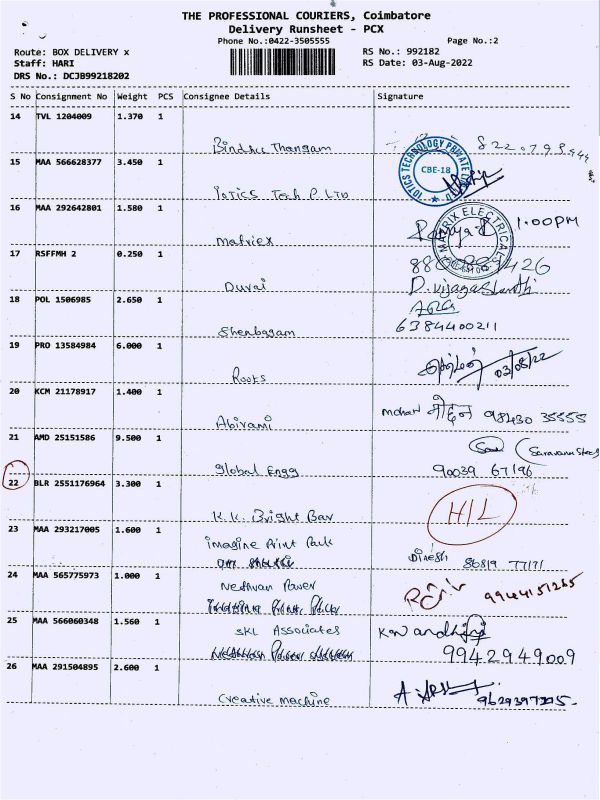 THE PROFESSIONAL COURIERS, Coimbatore
Delivery Runsheet - PCX
Phone No.:0422-3505555
Page No.:2
Route: BOX DELIVERY x
RS No.: 992182
Staff: HARI
RS Date: 03-Aug-2022
DRS No.: DCJB99218202
S No Consignment No Weight PCS Consignee Details Signature
14 TVL 1204009 1.370 1
Bindhu Thangam
15 MAA 566628377 3.450 1
CBE-18
Iotics Tech P. LTD
16 MAA 292642801 1.580 1
MATRIX ELECTRICAL
1:00PM
Matriex
17 RSFFMH 2 0.250 1
Durai
18 POL 1506985 2.650 1
Shenbagam
6384400211
19 PRO 13584984 6.000 1
03/08/22
Roots
20 KCM 21178917 1.400 1
Abirami
mohan मोहन 98430 35555
21 AMD 25151586 9.500 1
Global Engg
90039 67196
22 BLR 2551176964 3.300 1
K.K. Bright Bar
H/L
23 MAA 293217005 1.600 1
imagine Print Pack
தினேஷ் 86819 77171
24 MAA 565775973 1.000 1
Nedhvan Power
9944151265
25 MAA 566060348 1.560 1
SKL Associates
9942949009
26 MAA 291504895 2.600 1
Creative machine